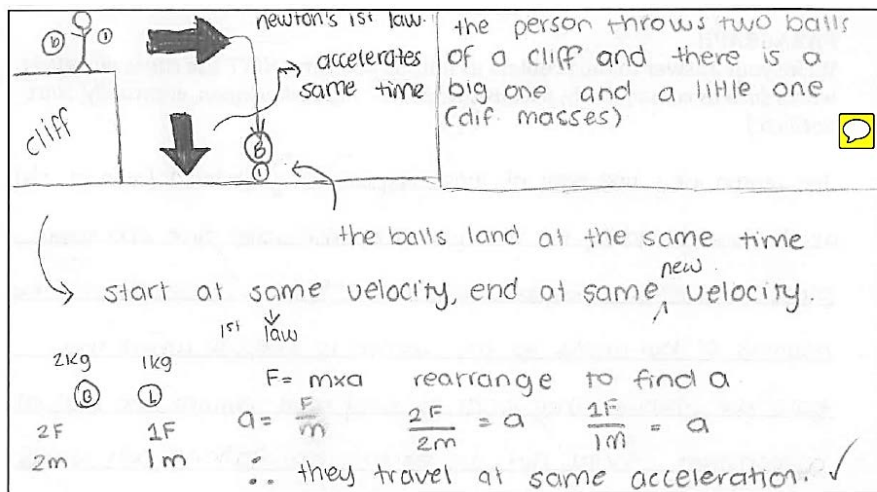 newton's 1st law.
accelerates
same time
b
1
cliff
B
1
the person throws two balls
of a cliff and there is a
big one and a little one
(dif. masses)
the balls land at the same time
start at same velocity, end at same new velocity
1st law
2kg 1kg
B 1
2F 1F
2m 1m
F = m×a rearrange to find a.
a = F/m 2F/2m = a 1F/1m = a
∴ they travel at same acceleration. ✓